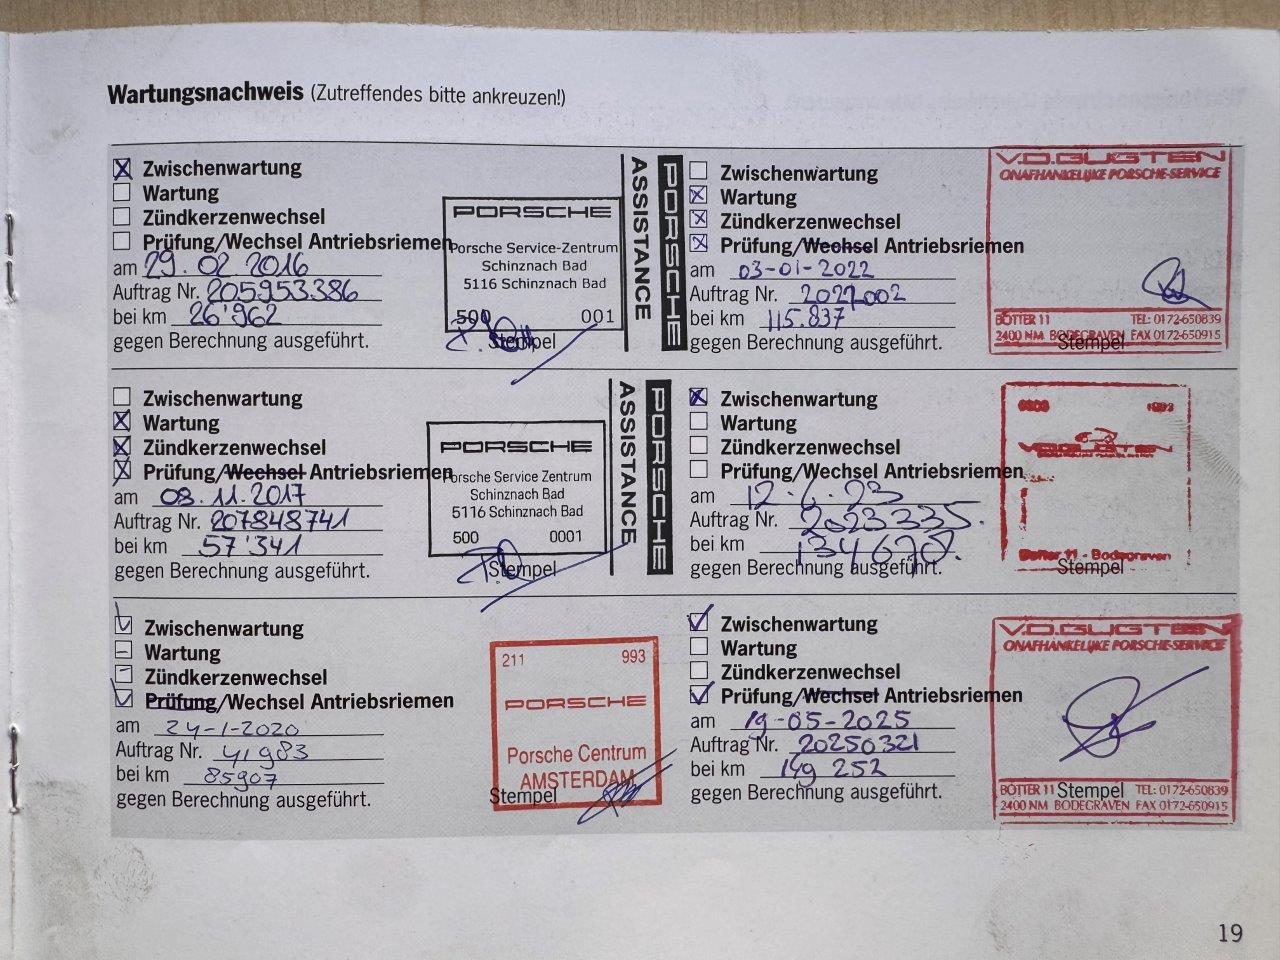 Wartungsnachweis (Zutreffendes bitte ankreuzen!)
Zwischenwartung
Wartung
Zündkerzenwechsel
Prüfung/Wechsel Antriebsriemen
am 29.02.2016
Auftrag Nr. 205953386
bei km 26'962
gegen Berechnung ausgeführt.
PORSCHE
Porsche Service-Zentrum
Schinznach Bad
5116 Schinznach Bad
500 001
Stempel
PORSCHE
ASSISTANCE
Zwischenwartung
Wartung
Zündkerzenwechsel
Prüfung/Wechsel Antriebsriemen
am 03-01-2022
Auftrag Nr. 2022002
bei km 115.837
gegen Berechnung ausgeführt.
V.D.GUGTEN
ONAFHANKELIJKE PORSCHE-SERVICE
BOTTER 11 TEL: 0172-650839
2400 NM BODEGRAVEN FAX 0172-650915
Stempel
Zwischenwartung
Wartung
Zündkerzenwechsel
Prüfung/Wechsel Antriebsriemen
am 08.11.2017
Auftrag Nr. 207848741
bei km 57'341
gegen Berechnung ausgeführt.
PORSCHE
Porsche Service Zentrum
Schinznach Bad
5116 Schinznach Bad
500 0001
Stempel
PORSCHE
ASSISTANCE
Zwischenwartung
Wartung
Zündkerzenwechsel
Prüfung/Wechsel Antriebsriemen
am 12-6-23
Auftrag Nr. 2023335.
bei km 134670.
gegen Berechnung ausgeführt.
V.D.GUGTEN
Botter 11 - Bodegraven
Stempel
Zwischenwartung
Wartung
Zündkerzenwechsel
Prüfung/Wechsel Antriebsriemen
am 24-1-2020
Auftrag Nr. 41983
bei km 85907
gegen Berechnung ausgeführt.
211 993
PORSCHE
Porsche Centrum
AMSTERDAM
Stempel
Zwischenwartung
Wartung
Zündkerzenwechsel
Prüfung/Wechsel Antriebsriemen
am 19-05-2025
Auftrag Nr. 20250321
bei km 149 252
gegen Berechnung ausgeführt.
V.D.GUGTEN
ONAFHANKELIJKE PORSCHE-SERVICE
BOTTER 11 TEL: 0172-650839
2400 NM BODEGRAVEN FAX 0172-650915
Stempel
19